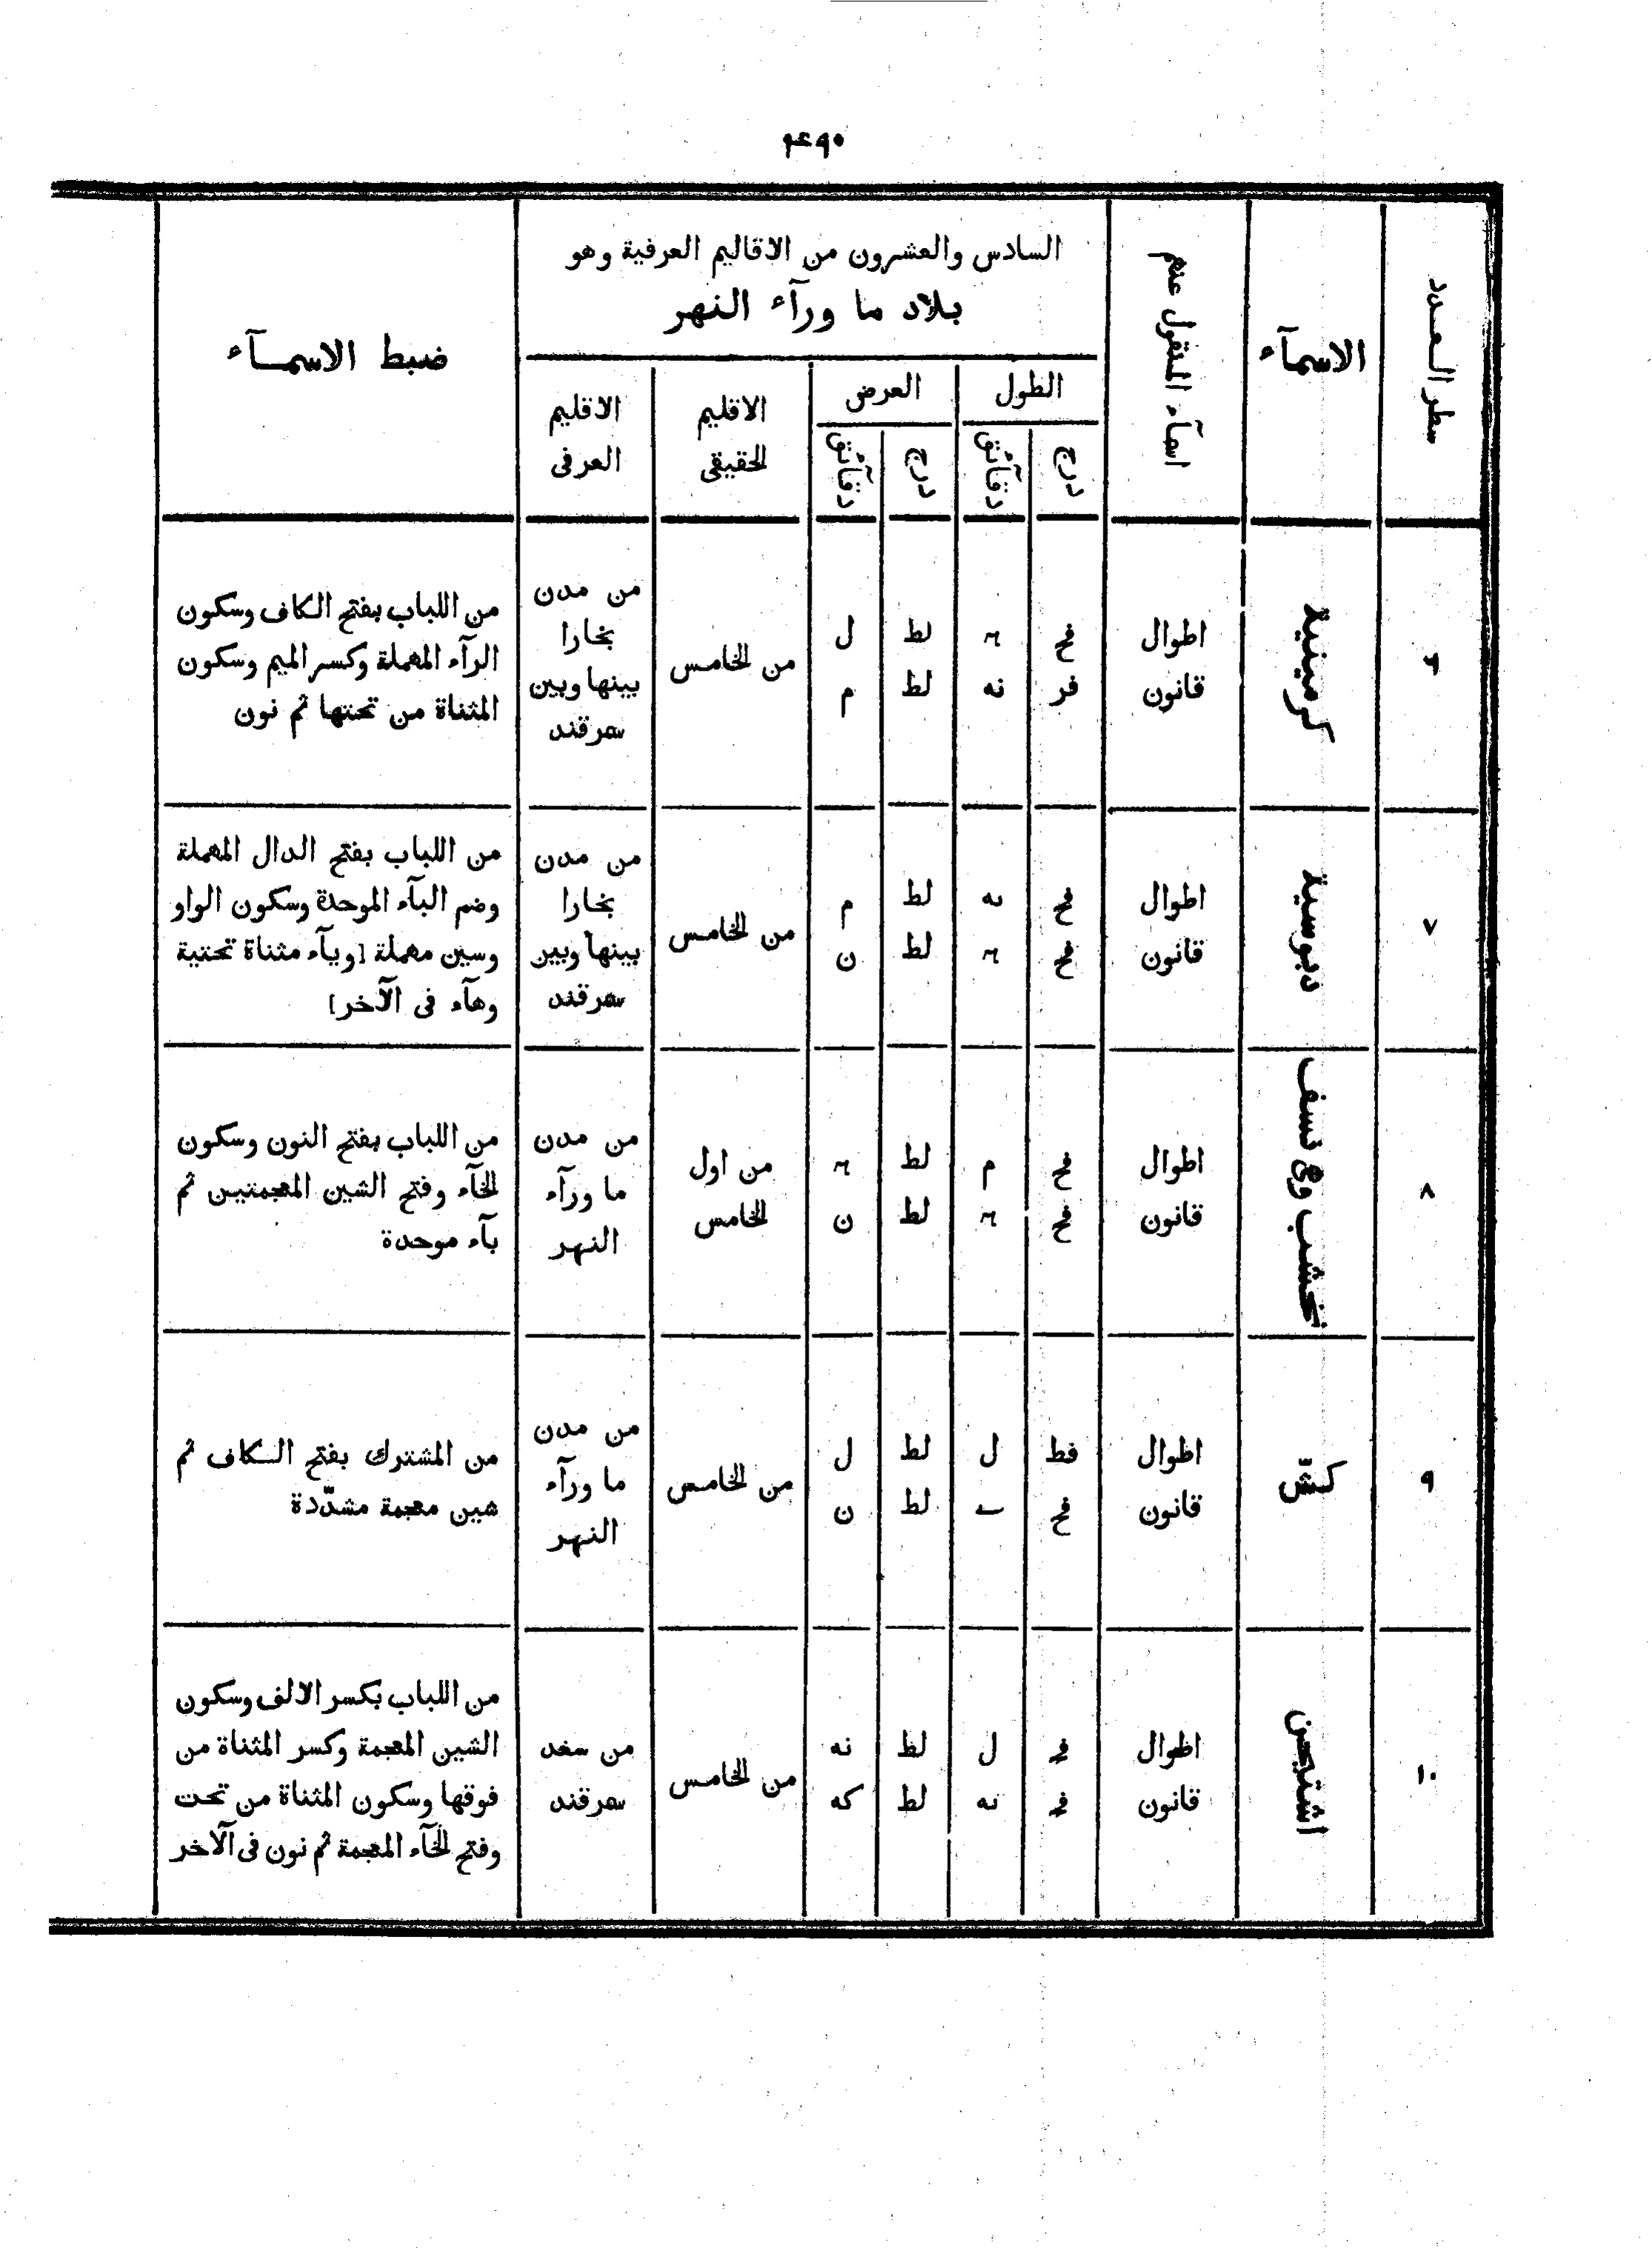 ۴۹۰
السادس والعشرون من الاقاليم العرفية وهو
بلاد ما ورآء النهر
سطر العدد
الاسمآء
اسمآء المنقول عنهم
الطول
درج
دقآئق
العرض
درج
دقآئق
الاقليم
الحقيقى
الاقليم
العرفى
ضبط الاسمـــآء
۶
كرمينية
اطوال
قانون
فح
فز
نه
لط
لط
ل
م
من الخامس
من مدن
بخارا
بينها وبين
سمرقند
من اللباب بفتح الكاف وسكون
الرآء المهملة وكسر الميم وسكون
المثناة من تحتها ثم نون
۷
دبوسية
اطوال
قانون
فح
فح
نه
لط
لط
م
ن
من الخامس
من مدن
بخارا
بينها وبين
سمرقند
من اللباب بفتح الدال المهملة
وضم البآء الموحدة وسكون الواو
وسين مهملة [ويآء مثناة تحتية
وهآء فى الآخر]
۸
نخشب وهى نسف
اطوال
قانون
فح
فح
م
لط
لط
ن
من اول
الخامس
من مدن
ما ورآء
النهر
من اللباب بفتح النون وسكون
الخآء وفتح الشين المعجمتين ثم
بآء موحدة
۹
كشّ
اطوال
قانون
فط
فح
ل
لط
لط
ل
ن
من الخامس
من مدن
ما ورآء
النهر
من المشترك بفتح الكاف ثم
شين معجمة مشدّدة
۱۰
اشتيخن
اطوال
قانون
ل
نه
لط
لط
نه
كه
من الخامس
من سغد
سمرقند
من اللباب بكسر الالف وسكون
الشين المعجمة وكسر المثناة من
فوقها وسكون المثناة من تحت
وفتح الخآء المعجمة ثم نون فى الآخر